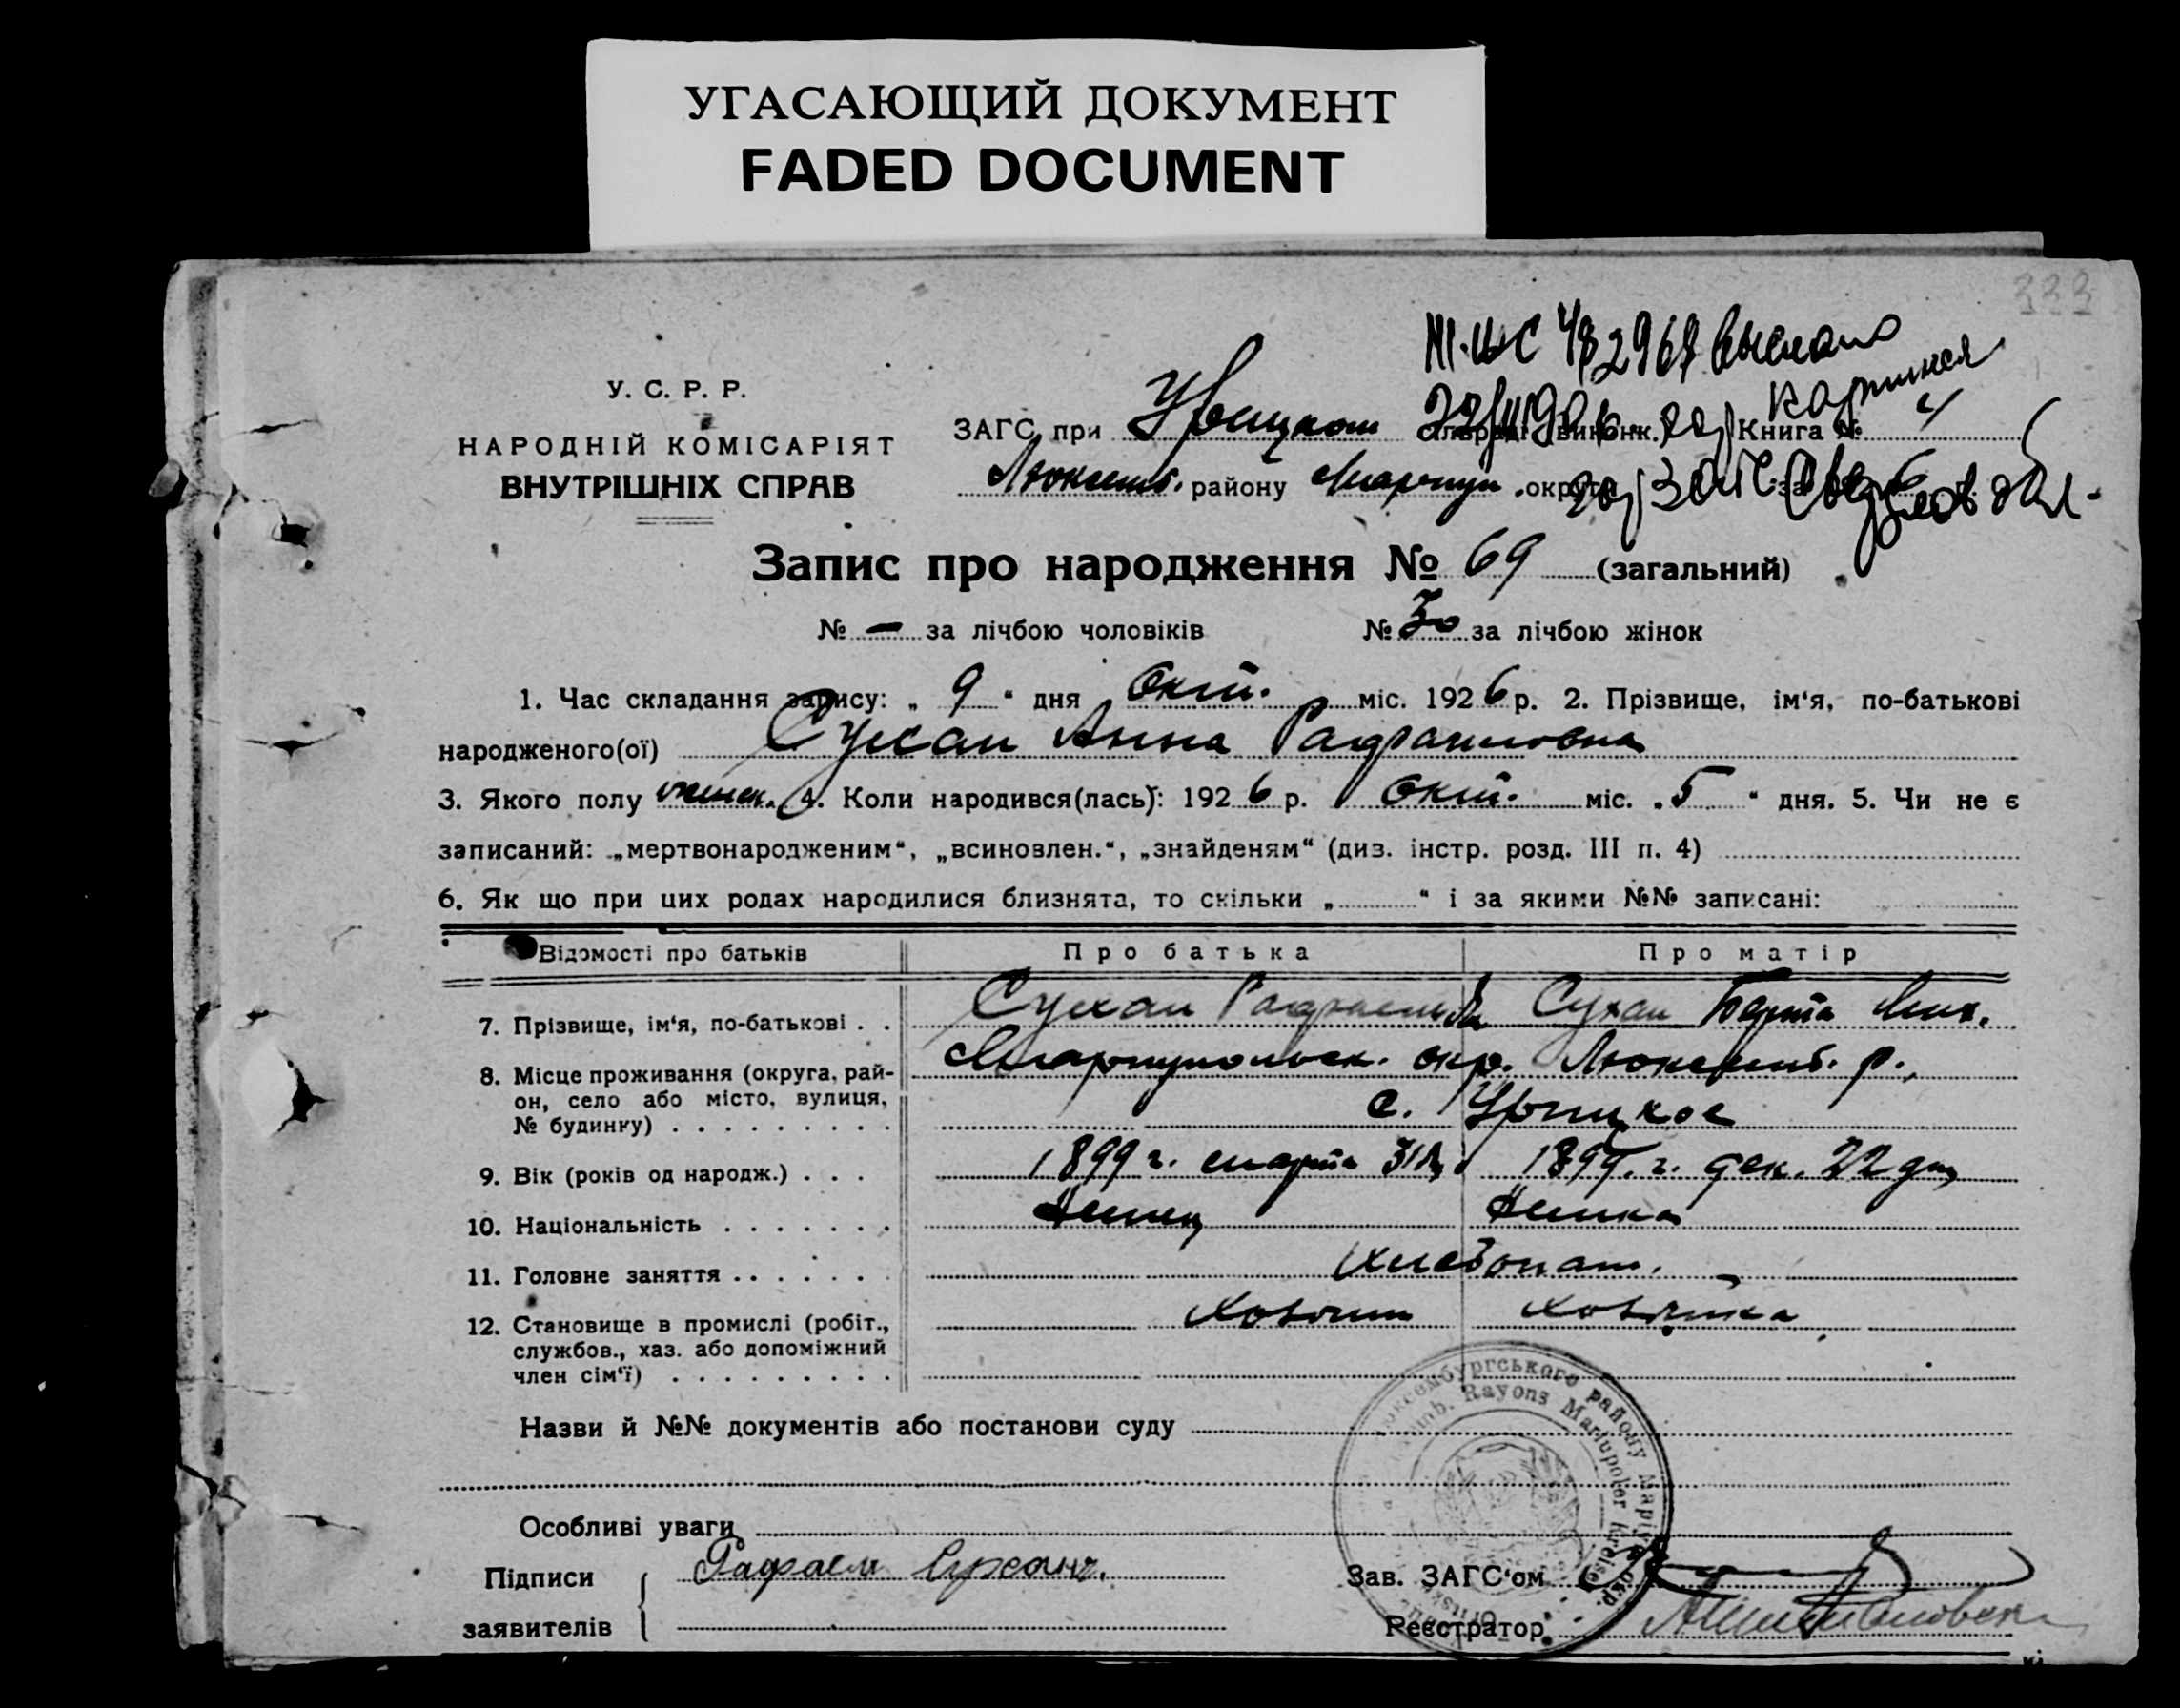 УГАСАЮЩИЙ ДОКУМЕНТ
FADED DOCUMENT
333
У. С. Р. Р.
НАРОДНІЙ КОМІСАРІЯТ
ВНУТРІШНІХ СПРАВ
ЗАГС при Урицком виконк. Книга № 4
Люксемб. району Мариуп. округи за 6
Запис про народження № 69 (загальний)
№ — за лічбою чоловіків № 30 за лічбою жінок
1. Час складання запису: „ 9 “ дня Окт. міс. 1926 р. 2. Прізвище, ім‘я, по-батькові
народженого(ої) Сухан Анна Рафаиловна
3. Якого полу женск. 4. Коли народився(лась): 1926 р. Окт. міс. „5“ дня. 5. Чи не є
записаний: „мертвонародженим“, „всиновлен.“, „знайденям“ (диз. інстр. розд. III п. 4)
6. Як що при цих родах народилися близнята, то скільки „ “ і за якими №№ записані:
Відомості про батьків Про батька Про матір
7. Прізвище, ім‘я, по-батькові . . Сухан Сухан Берта
8. Місце проживання (округа, рай- Мариупольск. окр. Люксемб. р.,
он, село або місто, вулиця, с. Урицкое
№ будинку)
9. Вік (років од народж.) . . . 1899 г. марта 31 г. дек. 22 дня
10. Національність Немец Немка
11. Головне заняття Хлебопаш.
12. Становище в промислі (робіт., Хозяин Хозяйка
службов., хаз. або допоміжний
член сім‘ї)
Назви й №№ документів або постанови суду
Особливі уваги
Підписи Рафаел Сухан
заявителів
Зав. ЗАГС‘ом
Реєстратор
Люксембургського району Маріуп. окр.
Rayons Mariupoler Kreises